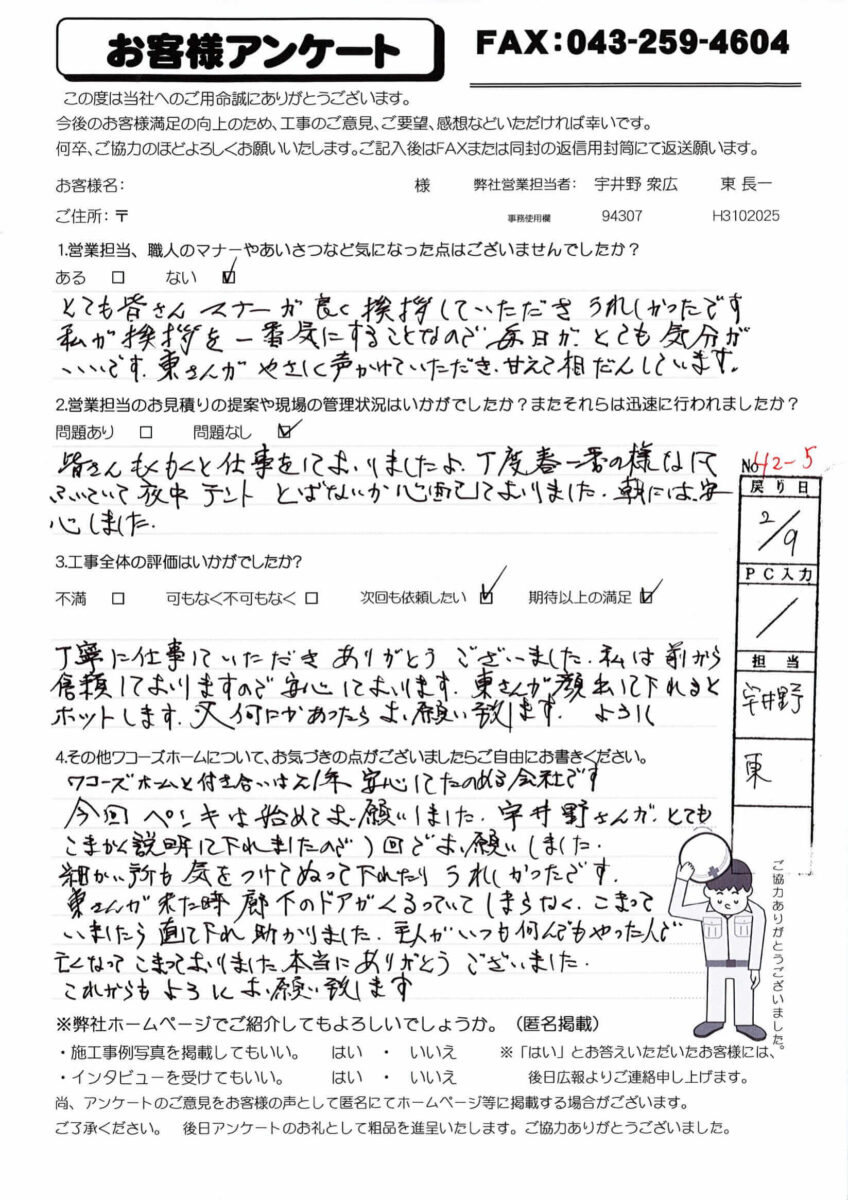 お客様アンケート
FAX:043-259-4604
この度は当社へのご用命誠にありがとうございます。
今後のお客様満足の向上のため、工事のご意見、ご要望、感想などいただければ幸いです。
何卒、ご協力のほどよろしくお願いいたします。ご記入後はFAXまたは同封の返信用封筒にて返送願います。
お客様名: 様 弊社営業担当者: 宇井野 衆広 東 長一
ご住所:〒 事務使用欄 94307 H3102025
1.営業担当、職人のマナーやあいさつなど気になった点はございませんでしたか?
ある □ ない ☑
とても皆さん マナーが良く挨拶していただき うれしかったです
私が挨拶を一番気にすることなので 毎日が とても気分が
いいです。東さんが やさしく声かけていただき、甘えて相だんしています。
2.営業担当のお見積りの提案や現場の管理状況はいかがでしたか?またそれらは迅速に行われましたか?
問題あり □ 問題なし ☑
皆さんもくもくと仕事をしておりましたよ。丁度春一番の様な
ふいていて夜中 テント とばないか心配しておりました。朝には、安
心しました。
3.工事全体の評価はいかがでしたか?
不満 □ 可もなく不可もなく □ 次回も依頼したい ☑ 期待以上の満足 ☑
丁寧に仕事していただき ありがとう ございました。私は前から
信頼しておりますので安心しております。東さんが顔出して下れると
ホットします。又何にかあったら お願い致します。 よろしく
4.その他ワコーズホームについて、お気づきの点がございましたらご自由にお書きください。
ワコーズホームと付き合いは21年 安心してたのめる会社です
今回ペンキは始めてお願いしました。宇井野さんが、とても
こまかく説明して下れましたので 1回でお願いしました。
細かい所も 気をつけてぬって下れたり うれしかったです。
東さんが来た時 廊下のドアがくるっていて しまらなく、こまって
いましたら 直して下れ 助かりました。主人がいつも何んでもやった人で
亡くなって こまっておりました。本当にありがとう ございました。
これからもよろしく お願い致します
※弊社ホームページでご紹介してもよろしいでしょうか。(匿名掲載)
・施工事例写真を掲載してもいい。 はい ・ いいえ ※「はい」とお答えいただいたお客様には、
・インタビューを受けてもいい。 はい ・ いいえ 後日広報よりご連絡申し上げます。
尚、アンケートのご意見をお客様の声として匿名にてホームページ等に掲載する場合がございます。
ご了承ください。 後日アンケートのお礼として粗品を進呈いたします。ご協力ありがとうございました。
No 42-5
戻り日
2/9
PC入力
/
担当
宇井野
東
ご協力ありがとうございました。